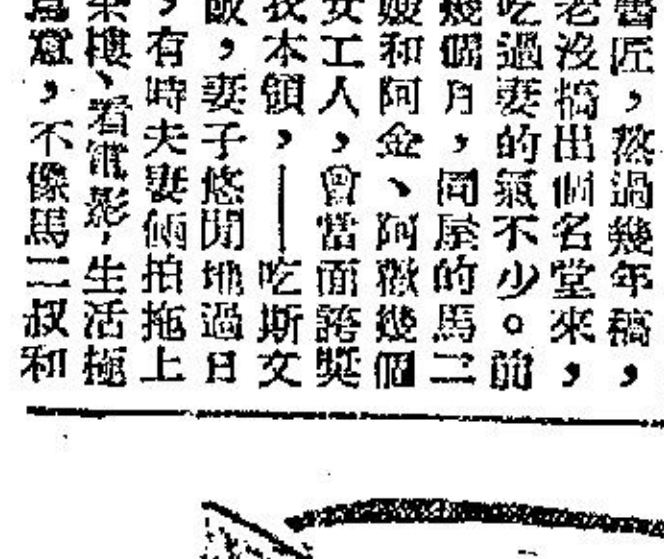 匠，熬過幾年稿，
老沒搞出個名堂來，
吃過妻的氣不少。前
幾個月，同屋的馬二
嫂和阿金、阿幾個
女工人，曾當面誇獎
我本領，——吃斯文
飯，妻子悠閒地過日
，有時夫妻倆拍拖上
茶樓、看電影，生活極
意，不像馬二叔和